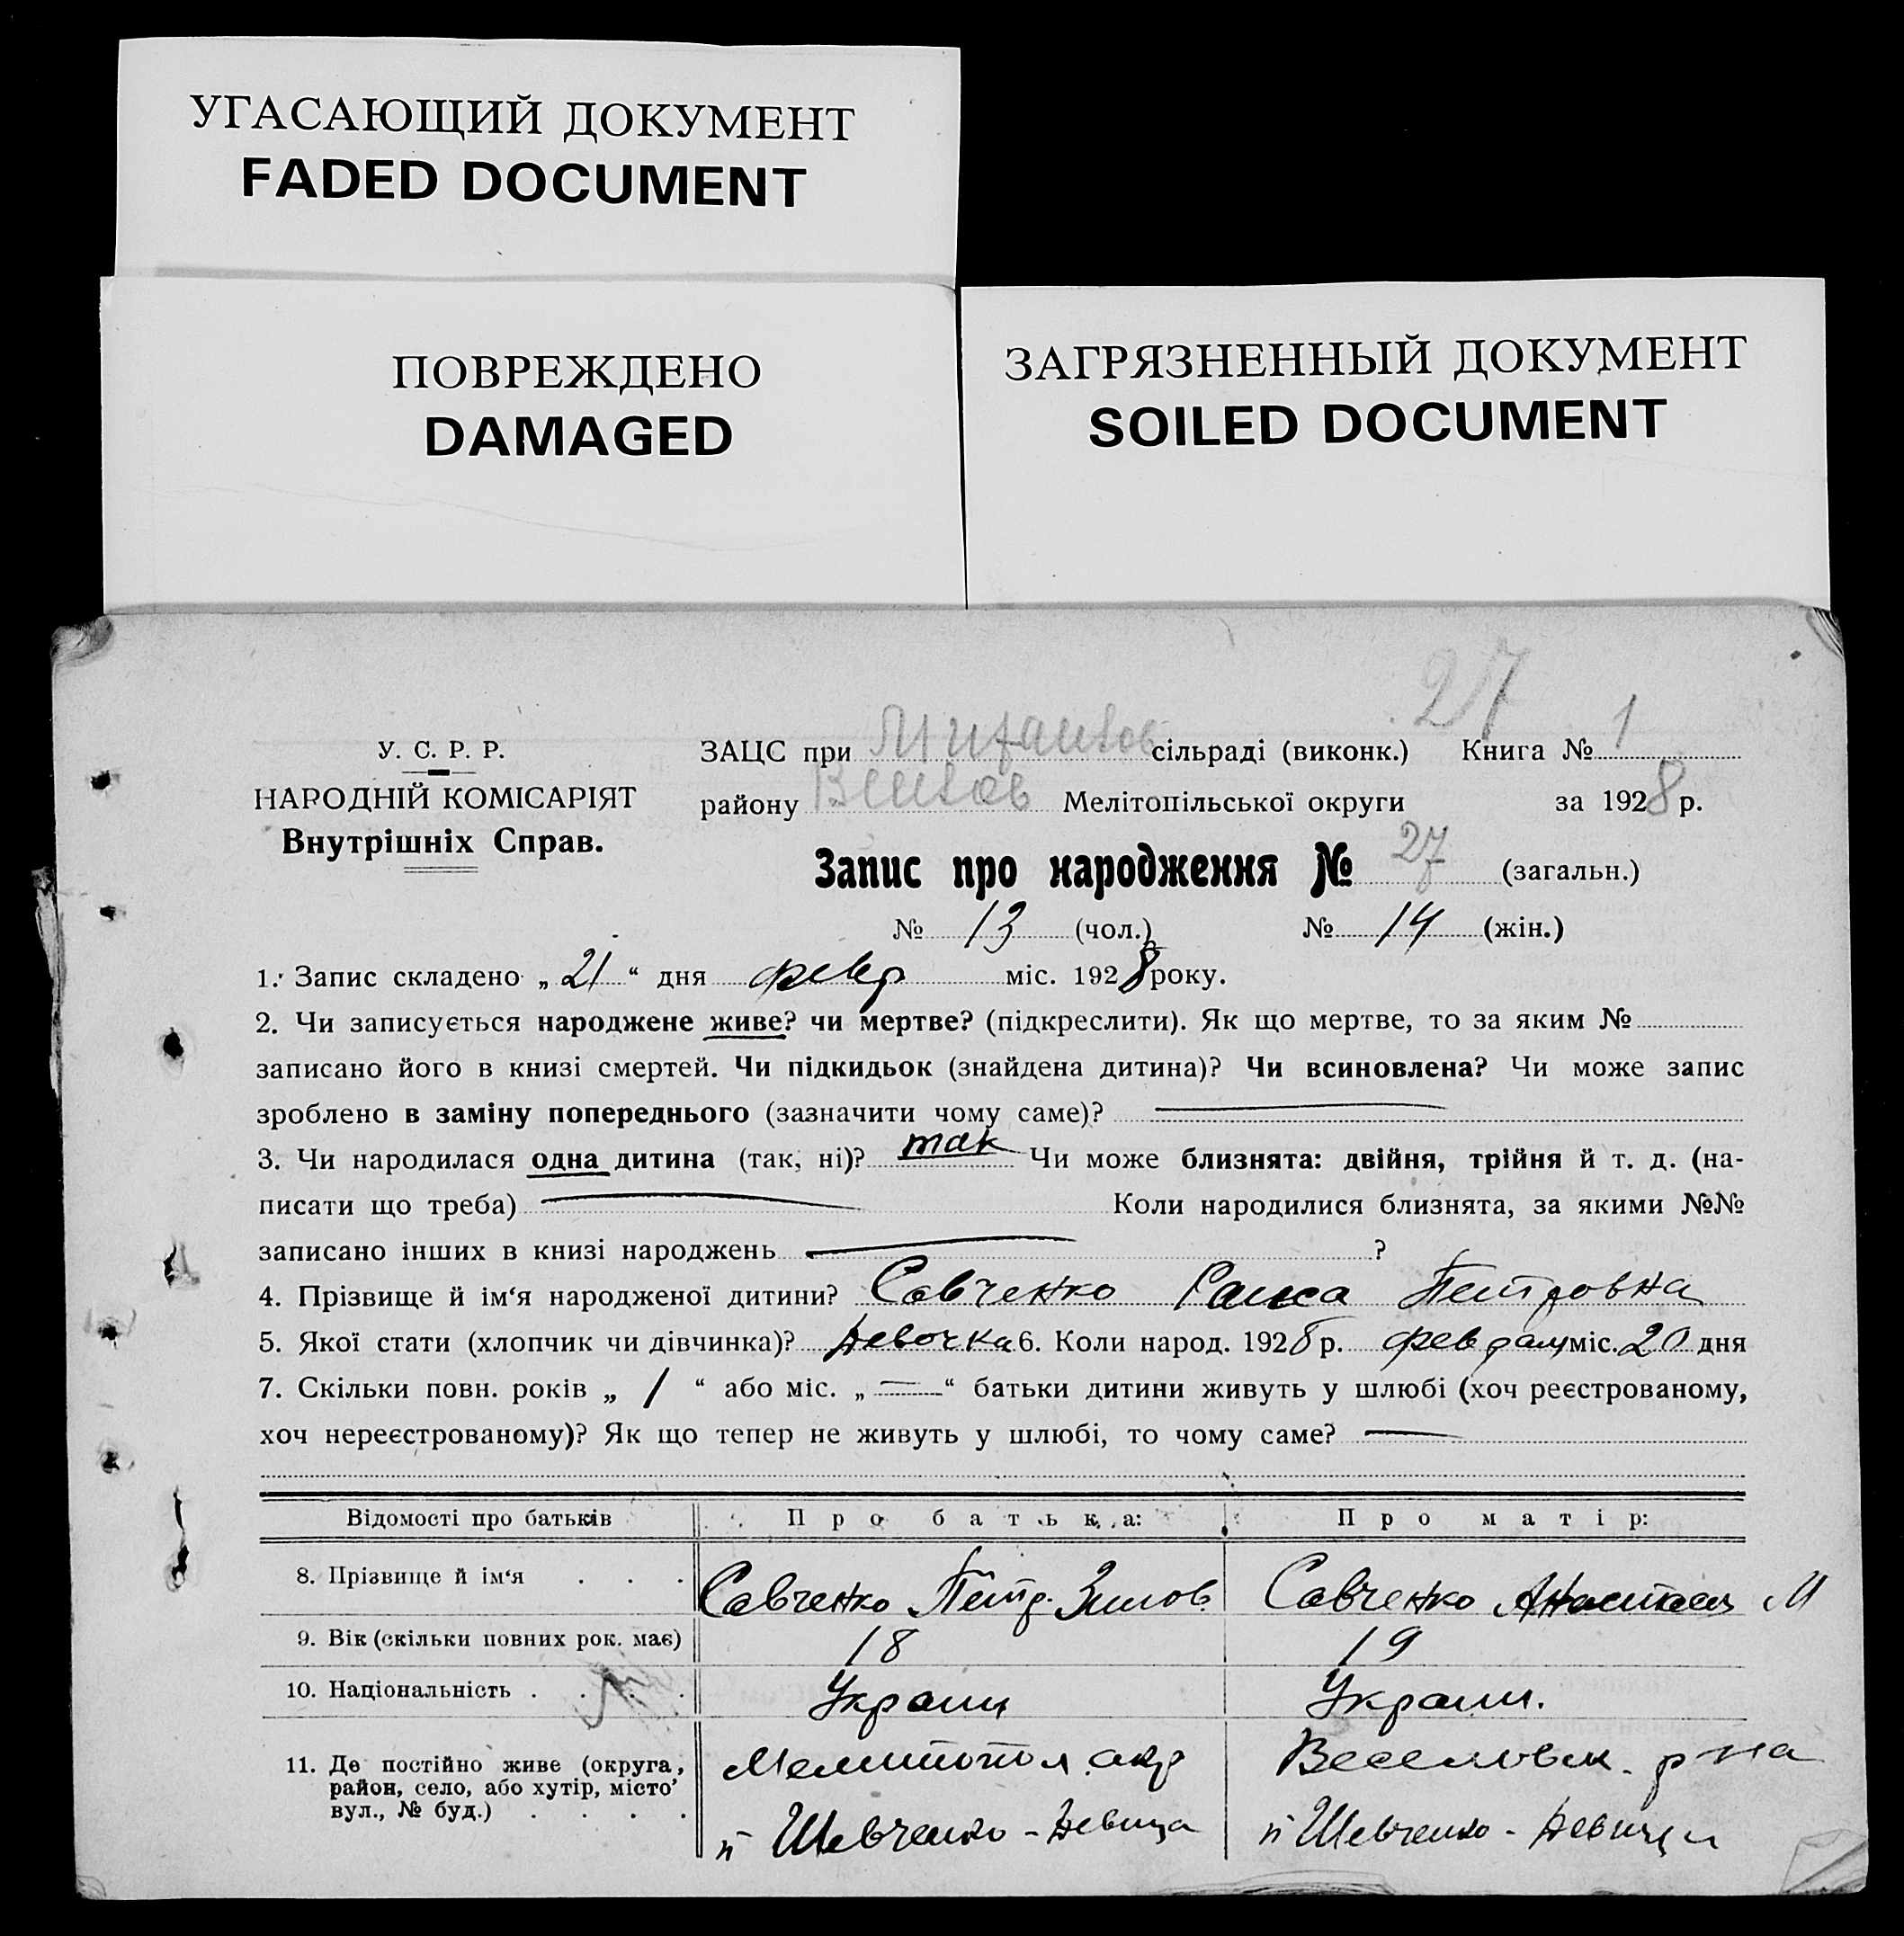 УГАСАЮЩИЙ ДОКУМЕНТ
FADED DOCUMENT
ПОВРЕЖДЕНО
DAMAGED
ЗАГРЯЗНЕННЫЙ ДОКУМЕНТ
SOILED DOCUMENT
27
У. С. Р. Р.
НАРОДНІЙ КОМІСАРІЯТ
Внутрішніх Справ.
ЗАЦС при сільраді (виконк.) Книга № 1
району Мелітопільської округи за 1928 р.
Запис про народження № 27 (загальн.)
№ 13 (чол.) № 14 (жін.)
1. Запис складено „ 21 “ дня февр міс. 1928 року.
2. Чи записується народжене живе? чи мертве? (підкреслити). Як що мертве, то за яким №
записано його в книзі смертей. Чи підкидьок (знайдена дитина)? Чи всиновлена? Чи може запис
зроблено в заміну попереднього (зазначити чому саме)? —
3. Чи народилася одна дитина (так, ні)? так Чи може близнята: двійня, трійня й т. д. (на-
писати що треба) — Коли народилися близнята, за якими №№
записано інших в книзі народжень — ?
4. Прізвище й ім‘я народженої дитини? Савченко Раиса Петровна
5. Якої стати (хлопчик чи дівчинка)? девочка 6. Коли народ. 1928 р. міс. 20 дня
7. Скільки повн. років „ 1 “ або міс. „ — “ батьки дитини живуть у шлюбі (хоч реєстрованому,
хоч нереєстрованому)? Як що тепер не живуть у шлюбі, то чому саме? —
Відомості про батьків Про батька: Про матір:
8. Прізвище й ім‘я . . . Савченко Петр. Савченко Анастасия М
9. Вік (скільки повних рок. має) 18 19
10. Національність . . . . Украин Украин.
11. Де постійно живе (округа, Мелитопол окр Веселовск. р на
район, село, або хутір, місто’
вул., № буд.) . . . . п Шевченко - Девица п Шевченко -